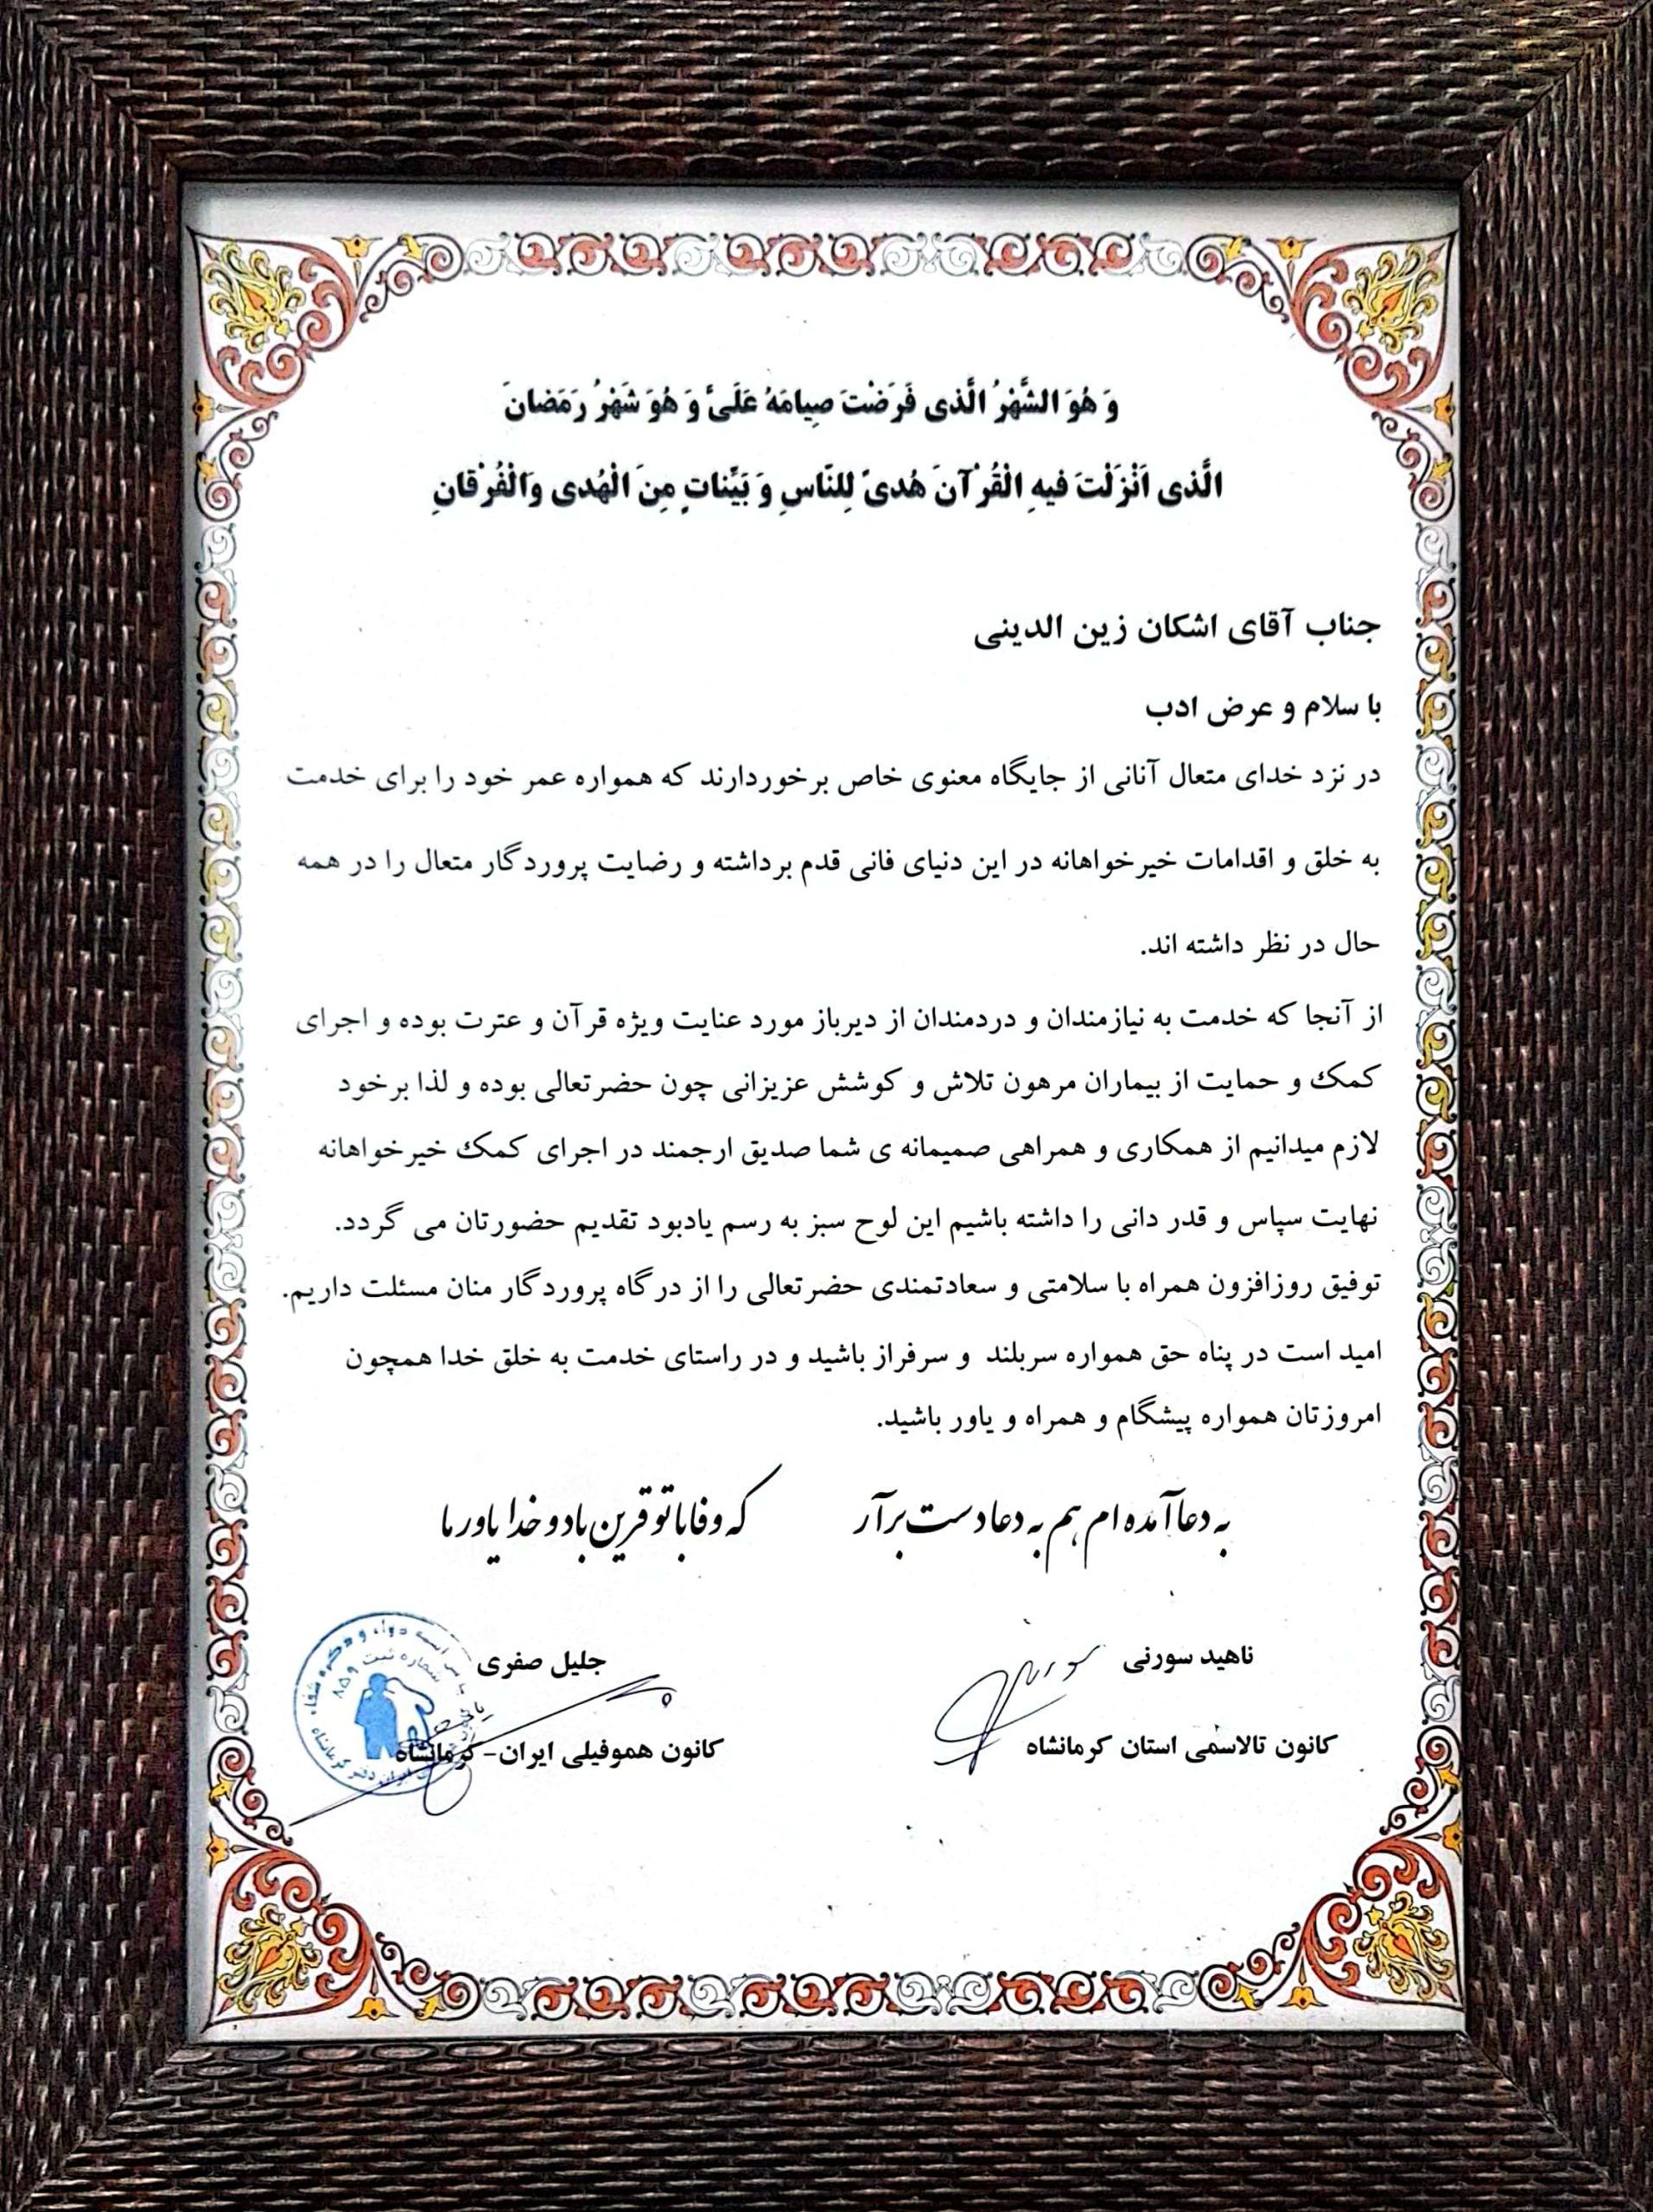 وَ هُوَ الشَّهْرُ الَّذی فَرَضْتَ صِیامَهُ عَلَیَّ وَ هُوَ شَهْرُ رَمَضانَ
الَّذی اَنْزَلْتَ فیهِ الْقُرْآنَ هُدیً لِلنّاسِ وَ بَیِّناتٍ مِنَ الْهُدی وَالْفُرْقانِ
جناب آقای اشکان زین الدینی
با سلام و عرض ادب
در نزد خدای متعال آنانی از جایگاه معنوی خاص برخوردارند که همواره عمر خود را برای خدمت
به خلق و اقدامات خیرخواهانه در این دنیای فانی قدم برداشته و رضایت پروردگار متعال را در همه
حال در نظر داشته اند.
از آنجا که خدمت به نیازمندان و دردمندان از دیرباز مورد عنایت ویژه قرآن و عترت بوده و اجرای
کمک و حمایت از بیماران مرهون تلاش و کوشش عزیزانی چون حضرتعالی بوده و لذا برخود
لازم میدانیم از همکاری و همراهی صمیمانه ی شما صدیق ارجمند در اجرای کمک خیرخواهانه
نهایت سپاس و قدر دانی را داشته باشیم این لوح سبز به رسم یادبود تقدیم حضورتان می گردد.
توفیق روزافزون همراه با سلامتی و سعادتمندی حضرتعالی را از درگاه پروردگار منان مسئلت داریم.
امید است در پناه حق همواره سربلند و سرفراز باشید و در راستای خدمت به خلق خدا همچون
امروزتان همواره پیشگام و همراه و یاور باشید.
به دعا آمده ام هم به دعا دست برآر که وفا با تو قرین باد و خدا یاور ما
ناهید سورنی
کانون تالاسمی استان کرمانشاه
جلیل صفری
کانون هموفیلی ایران-کرمانشاه
شماره ثبت ۸۵۹
ایران دفتر کرمانشاه